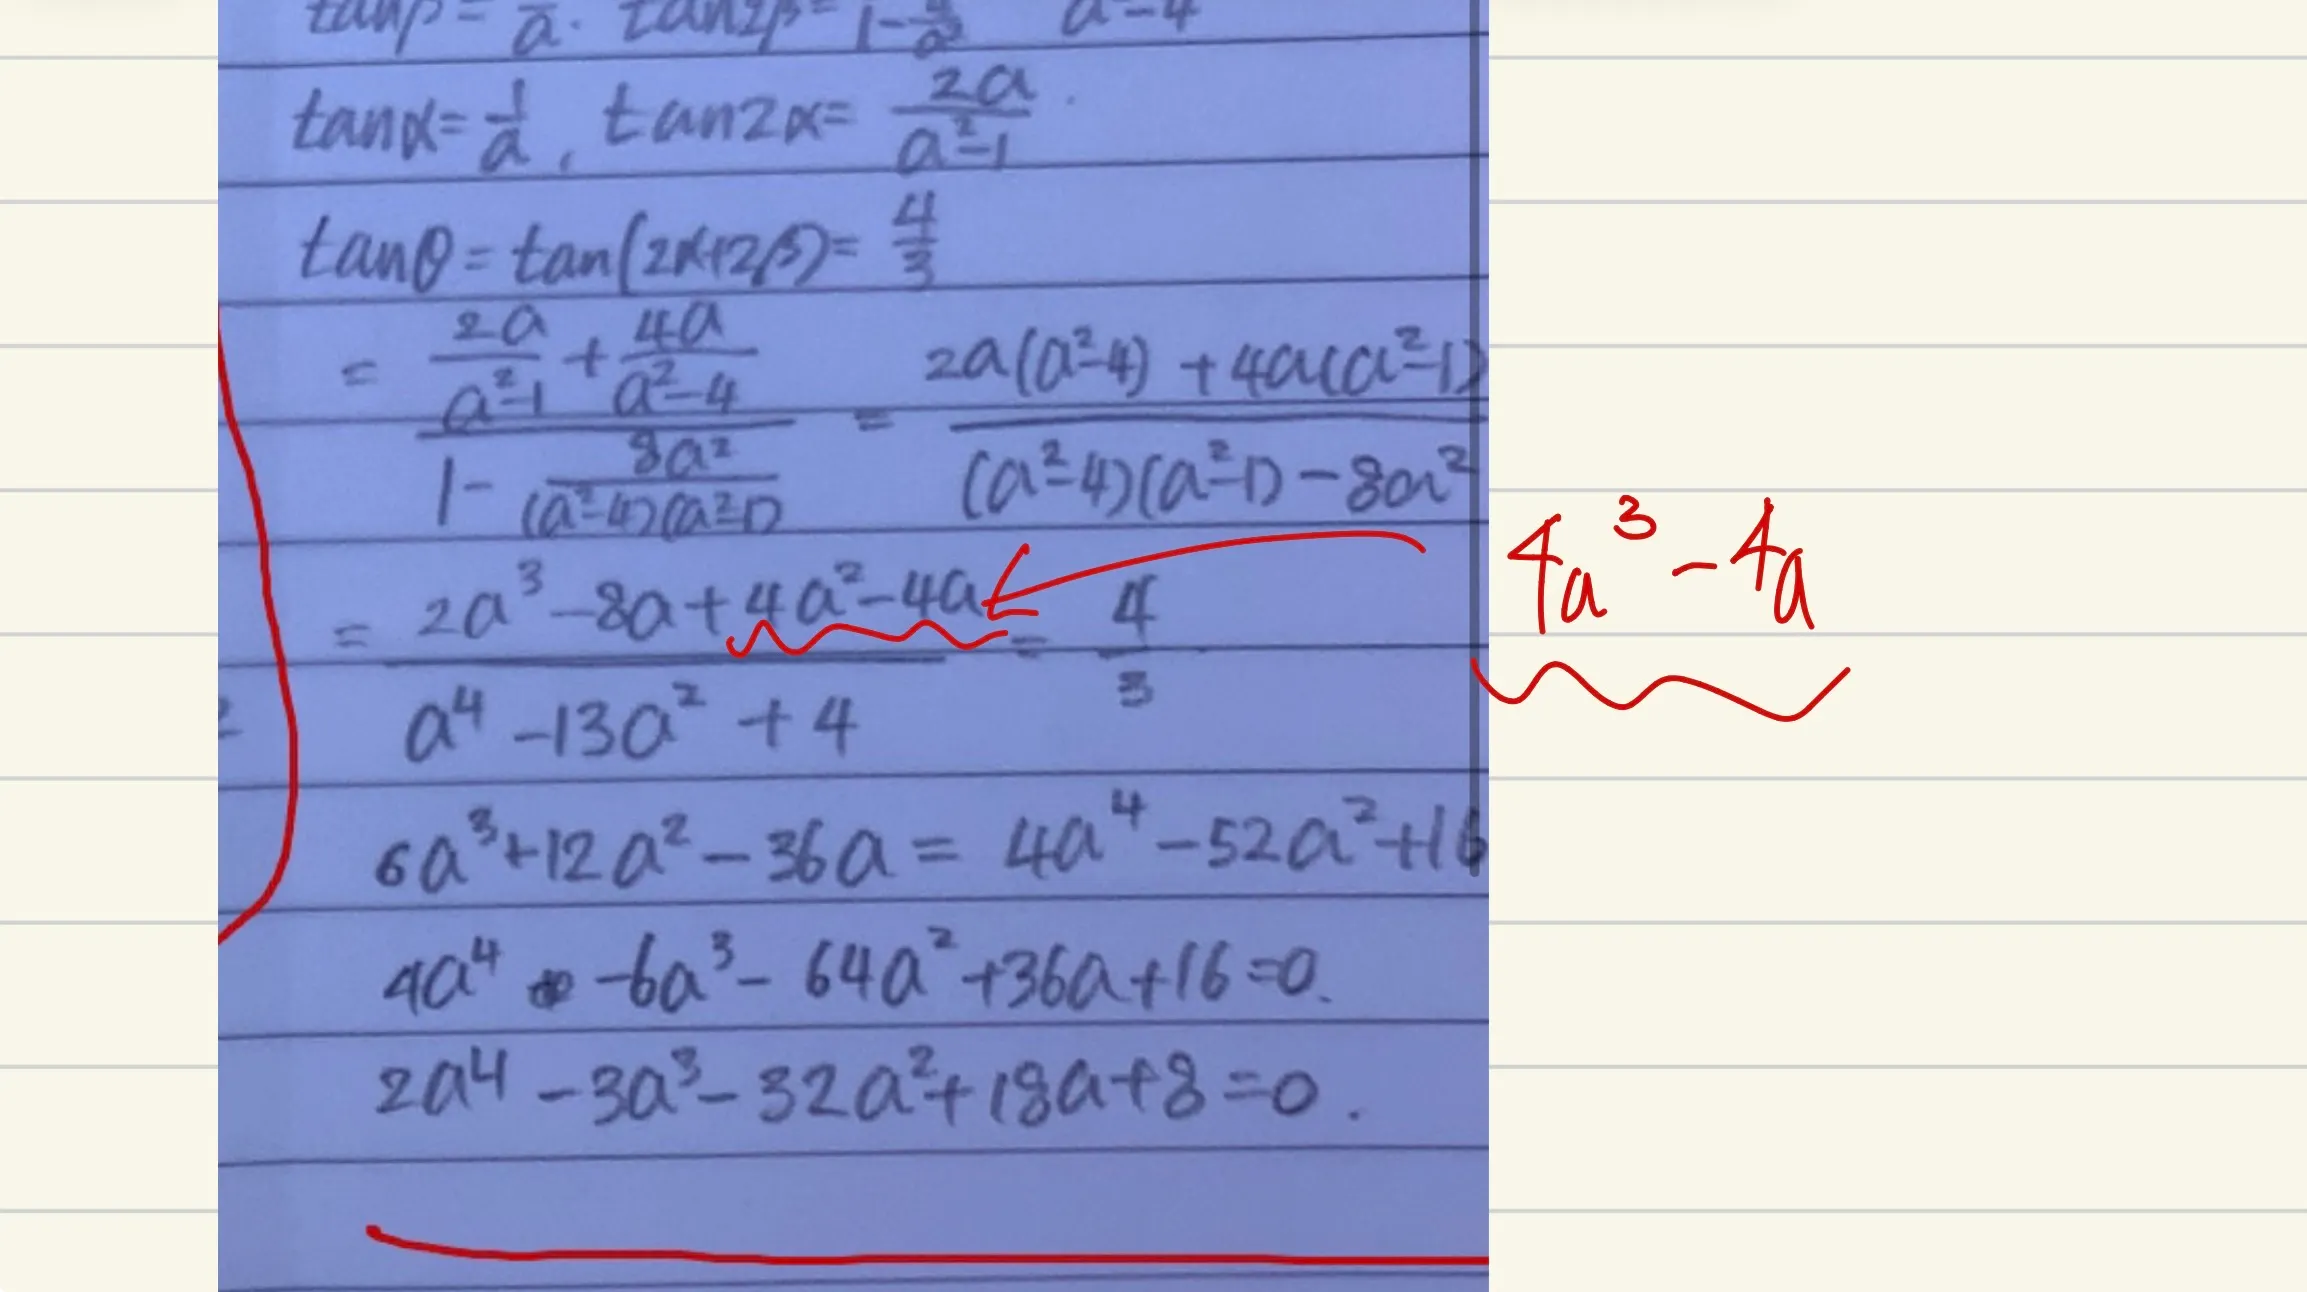 tanβ = 2/a. tan2β = 4/(1 - 4/a²) a² - 4
tanα = 1/a, tan2α = 2a/(a² - 1).
tanθ = tan(2α+2β) = 4/3
= (2a/(a²-1) + 4a/(a²-4)) / (1 - 8a²/((a²-4)(a²-1))) = (2a(a²-4) + 4a(a²-1)) / ((a²-4)(a²-1) - 8a²)
= (2a³ - 8a + 4a² - 4a) / (a⁴ - 13a² + 4) = 4/3
4a³ - 4a
2
6a³ + 12a² - 36a = 4a⁴ - 52a² + 16
4a⁴ - 6a³ - 64a² + 36a + 16 = 0.
2a⁴ - 3a³ - 32a² + 18a + 8 = 0.